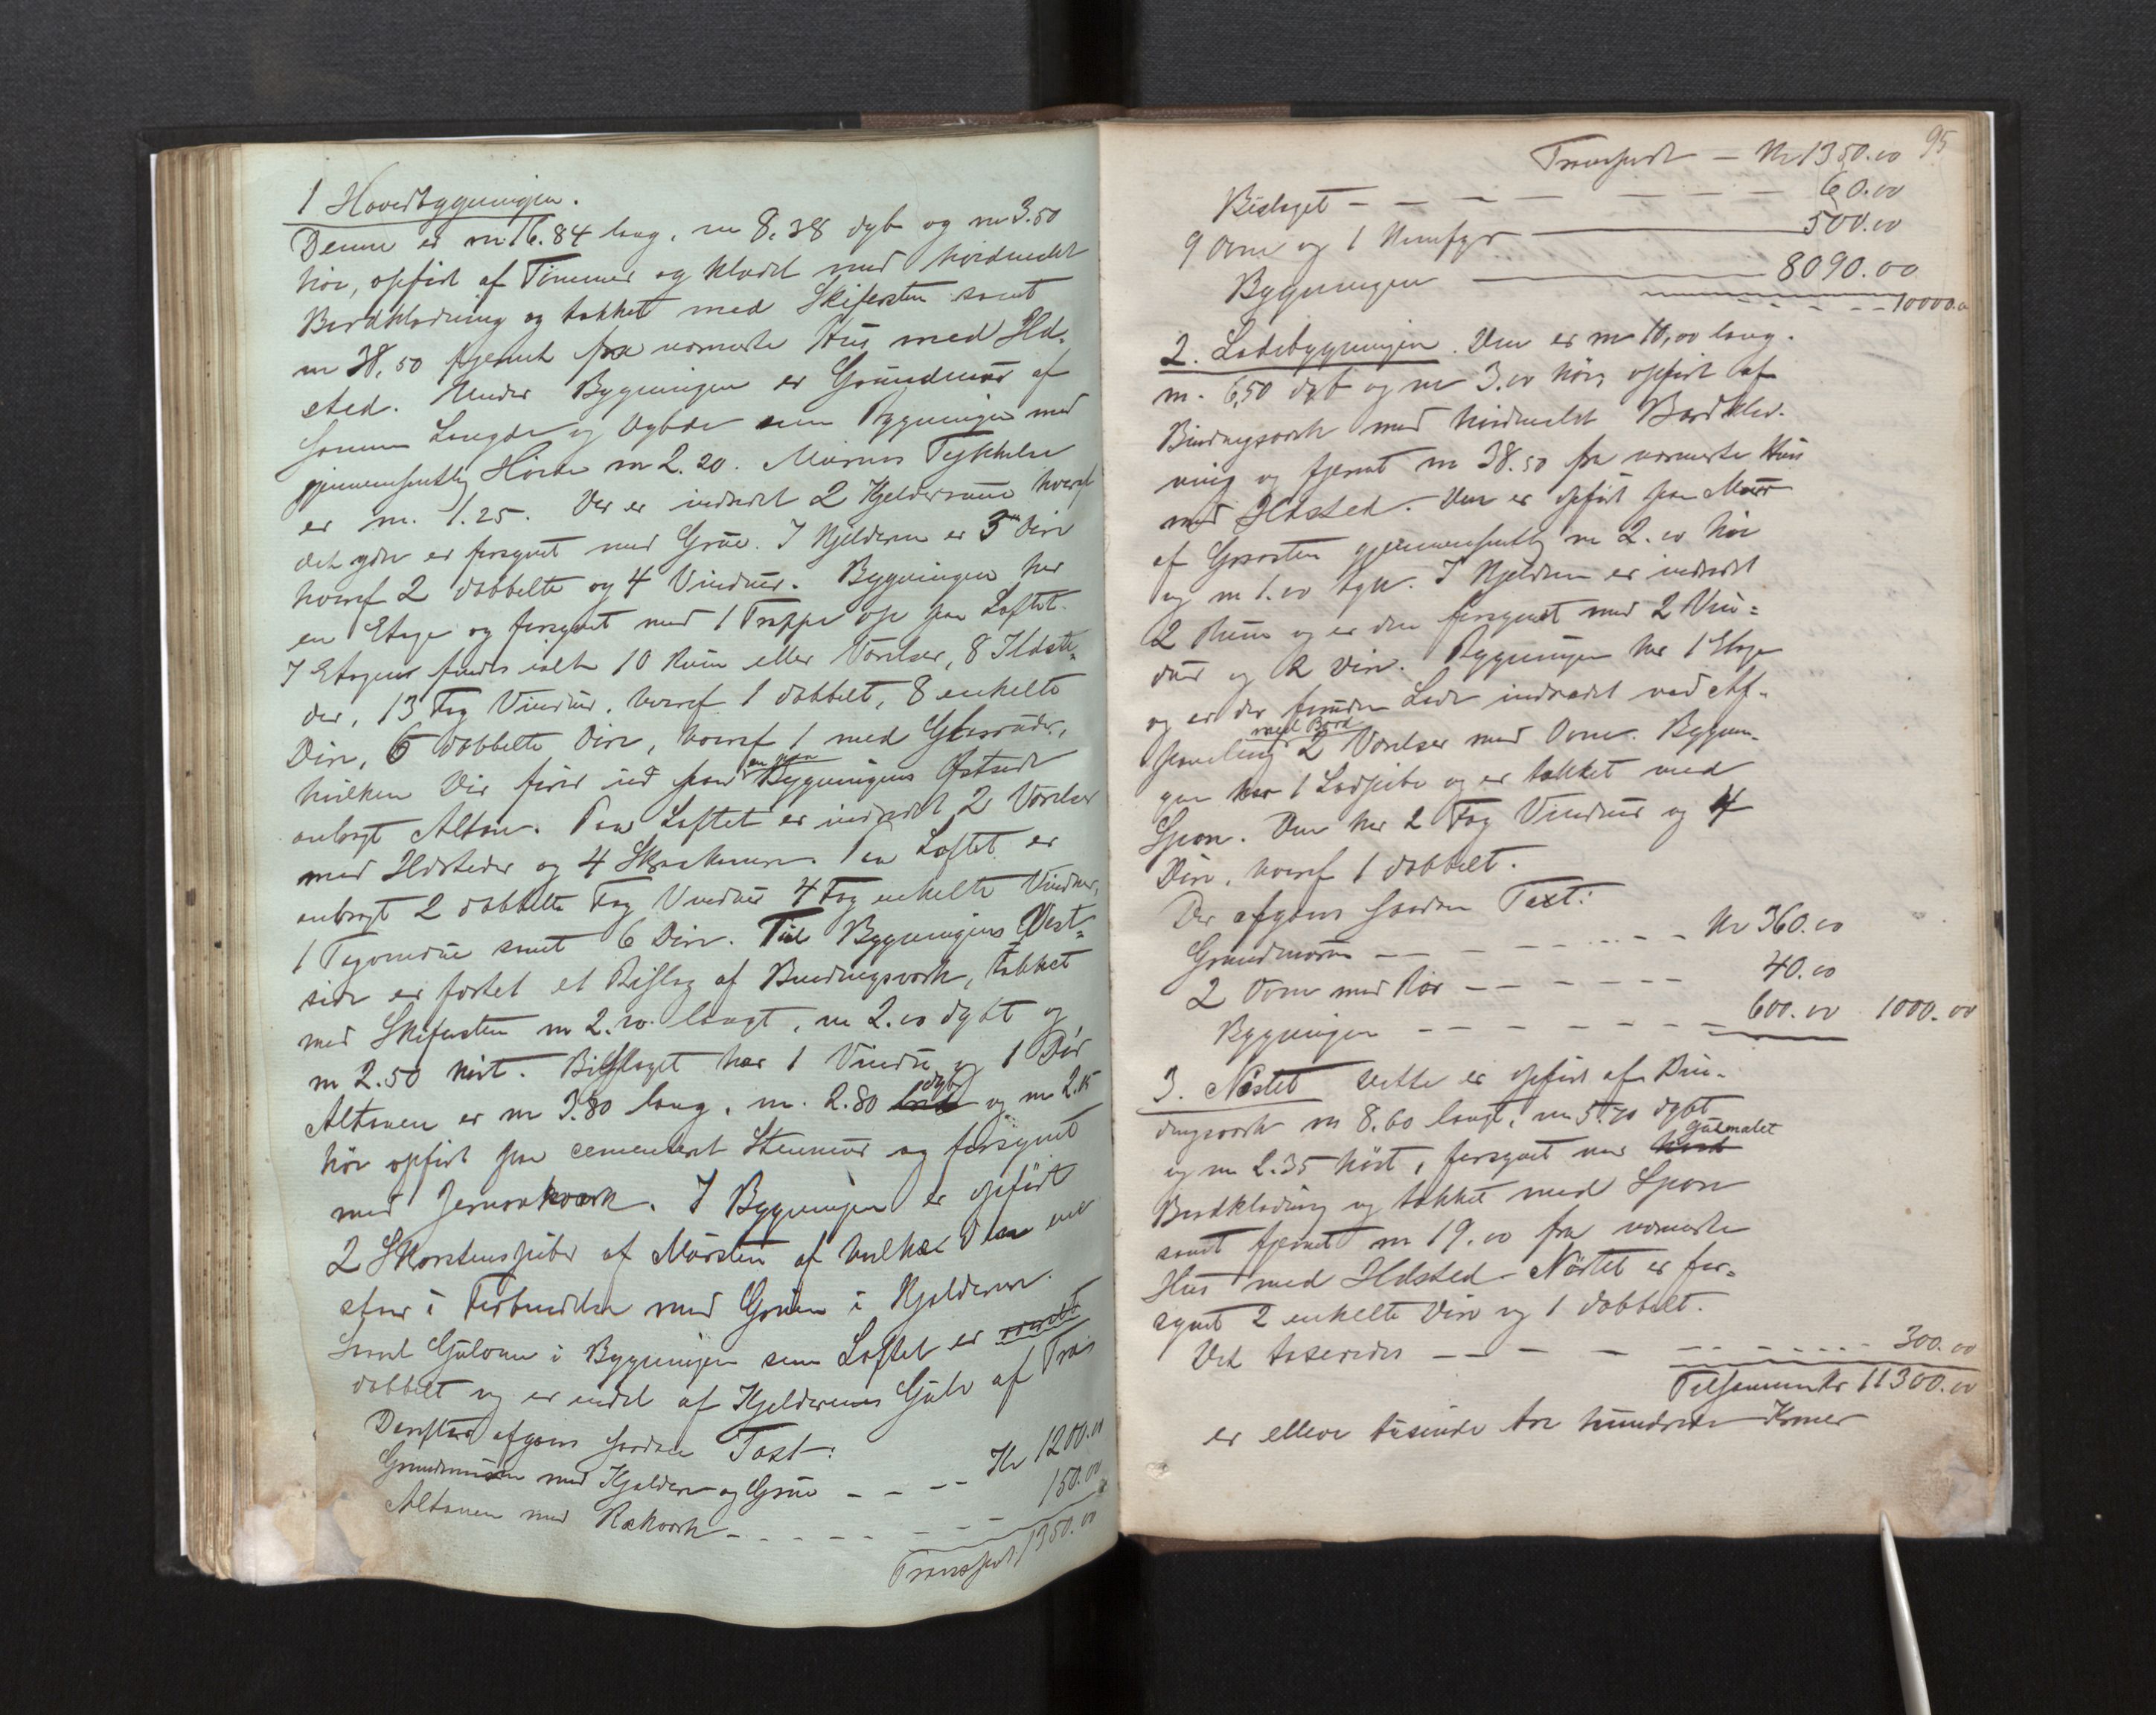 1 Hovedbygningen.
Denne er m 16.84 lang, m 8,38 dyb og m 3.50
høi, opført af Tømmer og klædt med hvidmalet
Bordklædning og tækket med Skifersten samt
m 38,50 fjernet fra nærmeste Hus med Ild-
sted. Under Bygningen er Grundmur af
samme Længde og Dybde som Bygningen med
gjennemsnitlig Høide m 2.20. Murens Tykkelse
er m. 1.25. Der er indredet 2 Kjelderrum hvoraf
det ydre er forsynet med Grue. I Kjelderen er 3 Døre
hvoraf 2 dobbelte og 4 Vinduer. Bygningen har
en Etage og forsynet med 1 Trappe op paa Loftet.
I Etagens findes ialt 10 Rum eller Værelser, 8 Ildste-
der, 13 Fag Vinduer, hvoraf 1 dobbelt, 8 enkelte
Døre, 6 dobbelte Døre, hvoraf 1 med Glasruder,
hvilken Dør fører ud paa en paa Bygningens Østside
anbragt Altan. Paa Loftet er indredet 2 Værelser
med Ildsteder og 4 Skraakamre. Paa Loftet er
anbragt 2 dobbelte Fag Vinduer 4 Fag enkelte Vinduer,
1 Tagvindue samt 6 Døre. Til Bygningens Vest-
side er føiet et Bislag af Bindingsværk, tækket
med Skifersten m 2.20 langt, m 2.00 dybt og
m 2.50 høit. Bislaget har 1 Vindue og 1 Dør
Altanen er m 3.80 lang, m. 2.80 dyb og m 2.15
høi opført paa cementeret Stenmur og forsynet
med Jernrækværk. I Bygningen er opført
2 Skorstenspiber af Mursten af hvilke den ene
staar i Forbindelse med Gruen i Kjelderen.
Saavel Gulvene i Bygningen som Loftet er
dobbelt og er endel af Kjelderens Gulv af Træ
Derefter afgaves saadan Taxt:
Grundmuren med Kjelder og Grue - - - - Kr 1200.00
Altanen med Rækværk - - - - - - - 150.00
Transport 1350.00
95
Transport - Kr 1350.00
Bislaget - - - - - - - - 60.00
9 Ovne og 1 Komfyr 500.00
Bygningen 8090.00
- - - - 10000.00
2. Ladebygningen. Den er m 10,00 lang.
m. 6,50 dyb og m 3.00 høi, opført af
Bindingsværk med hvidmalet Bordklæd-
ning og fjernet m 38.50 fra nærmeste Hus
med Ildsted. Den er opført paa Mur
af Graasten gjennemsnitlig m 2.00 høi
og m 1.00 tyk. I Kjelderen er indredet
2 Rum og er den forsynet med 2 Vin-
duer og 2 Døre. Bygningen har 1 Etage
og er der foruden Lade indredet ved Af-
paneling med Bord 2 Værelser med Ovne. Bygnin-
gen har 1 Ladpibe og er tækket med
Spon. Den har 2 Fag Vinduer og 4
Døre, hvoraf 1 dobbelt.
Der afgaves saadan Taxt:
Grundmuren - - - - - - - Kr 360.00
2 Ovne med Rør - - - - - - 40.00
Bygningen - - - - - - - 600.00 1000.00
3. Nøstet Dette er opført af Bin-
dingsværk m 8.60 langt, m 5.70 dybt
og m 2.35 høit, forsynet med gulmalet
Bordklædning og tækket med Spon
samt fjernet m 19.00 fra nærmeste
Hus med Ildsted. Nøstet er for-
synet 2 enkelte Døre og 1 dobbelt.
Det taxeredes - - - - - - - - - 300.00
Tilsammen Kr 11300.00
er elleve tusinde tre hundrede Kroner